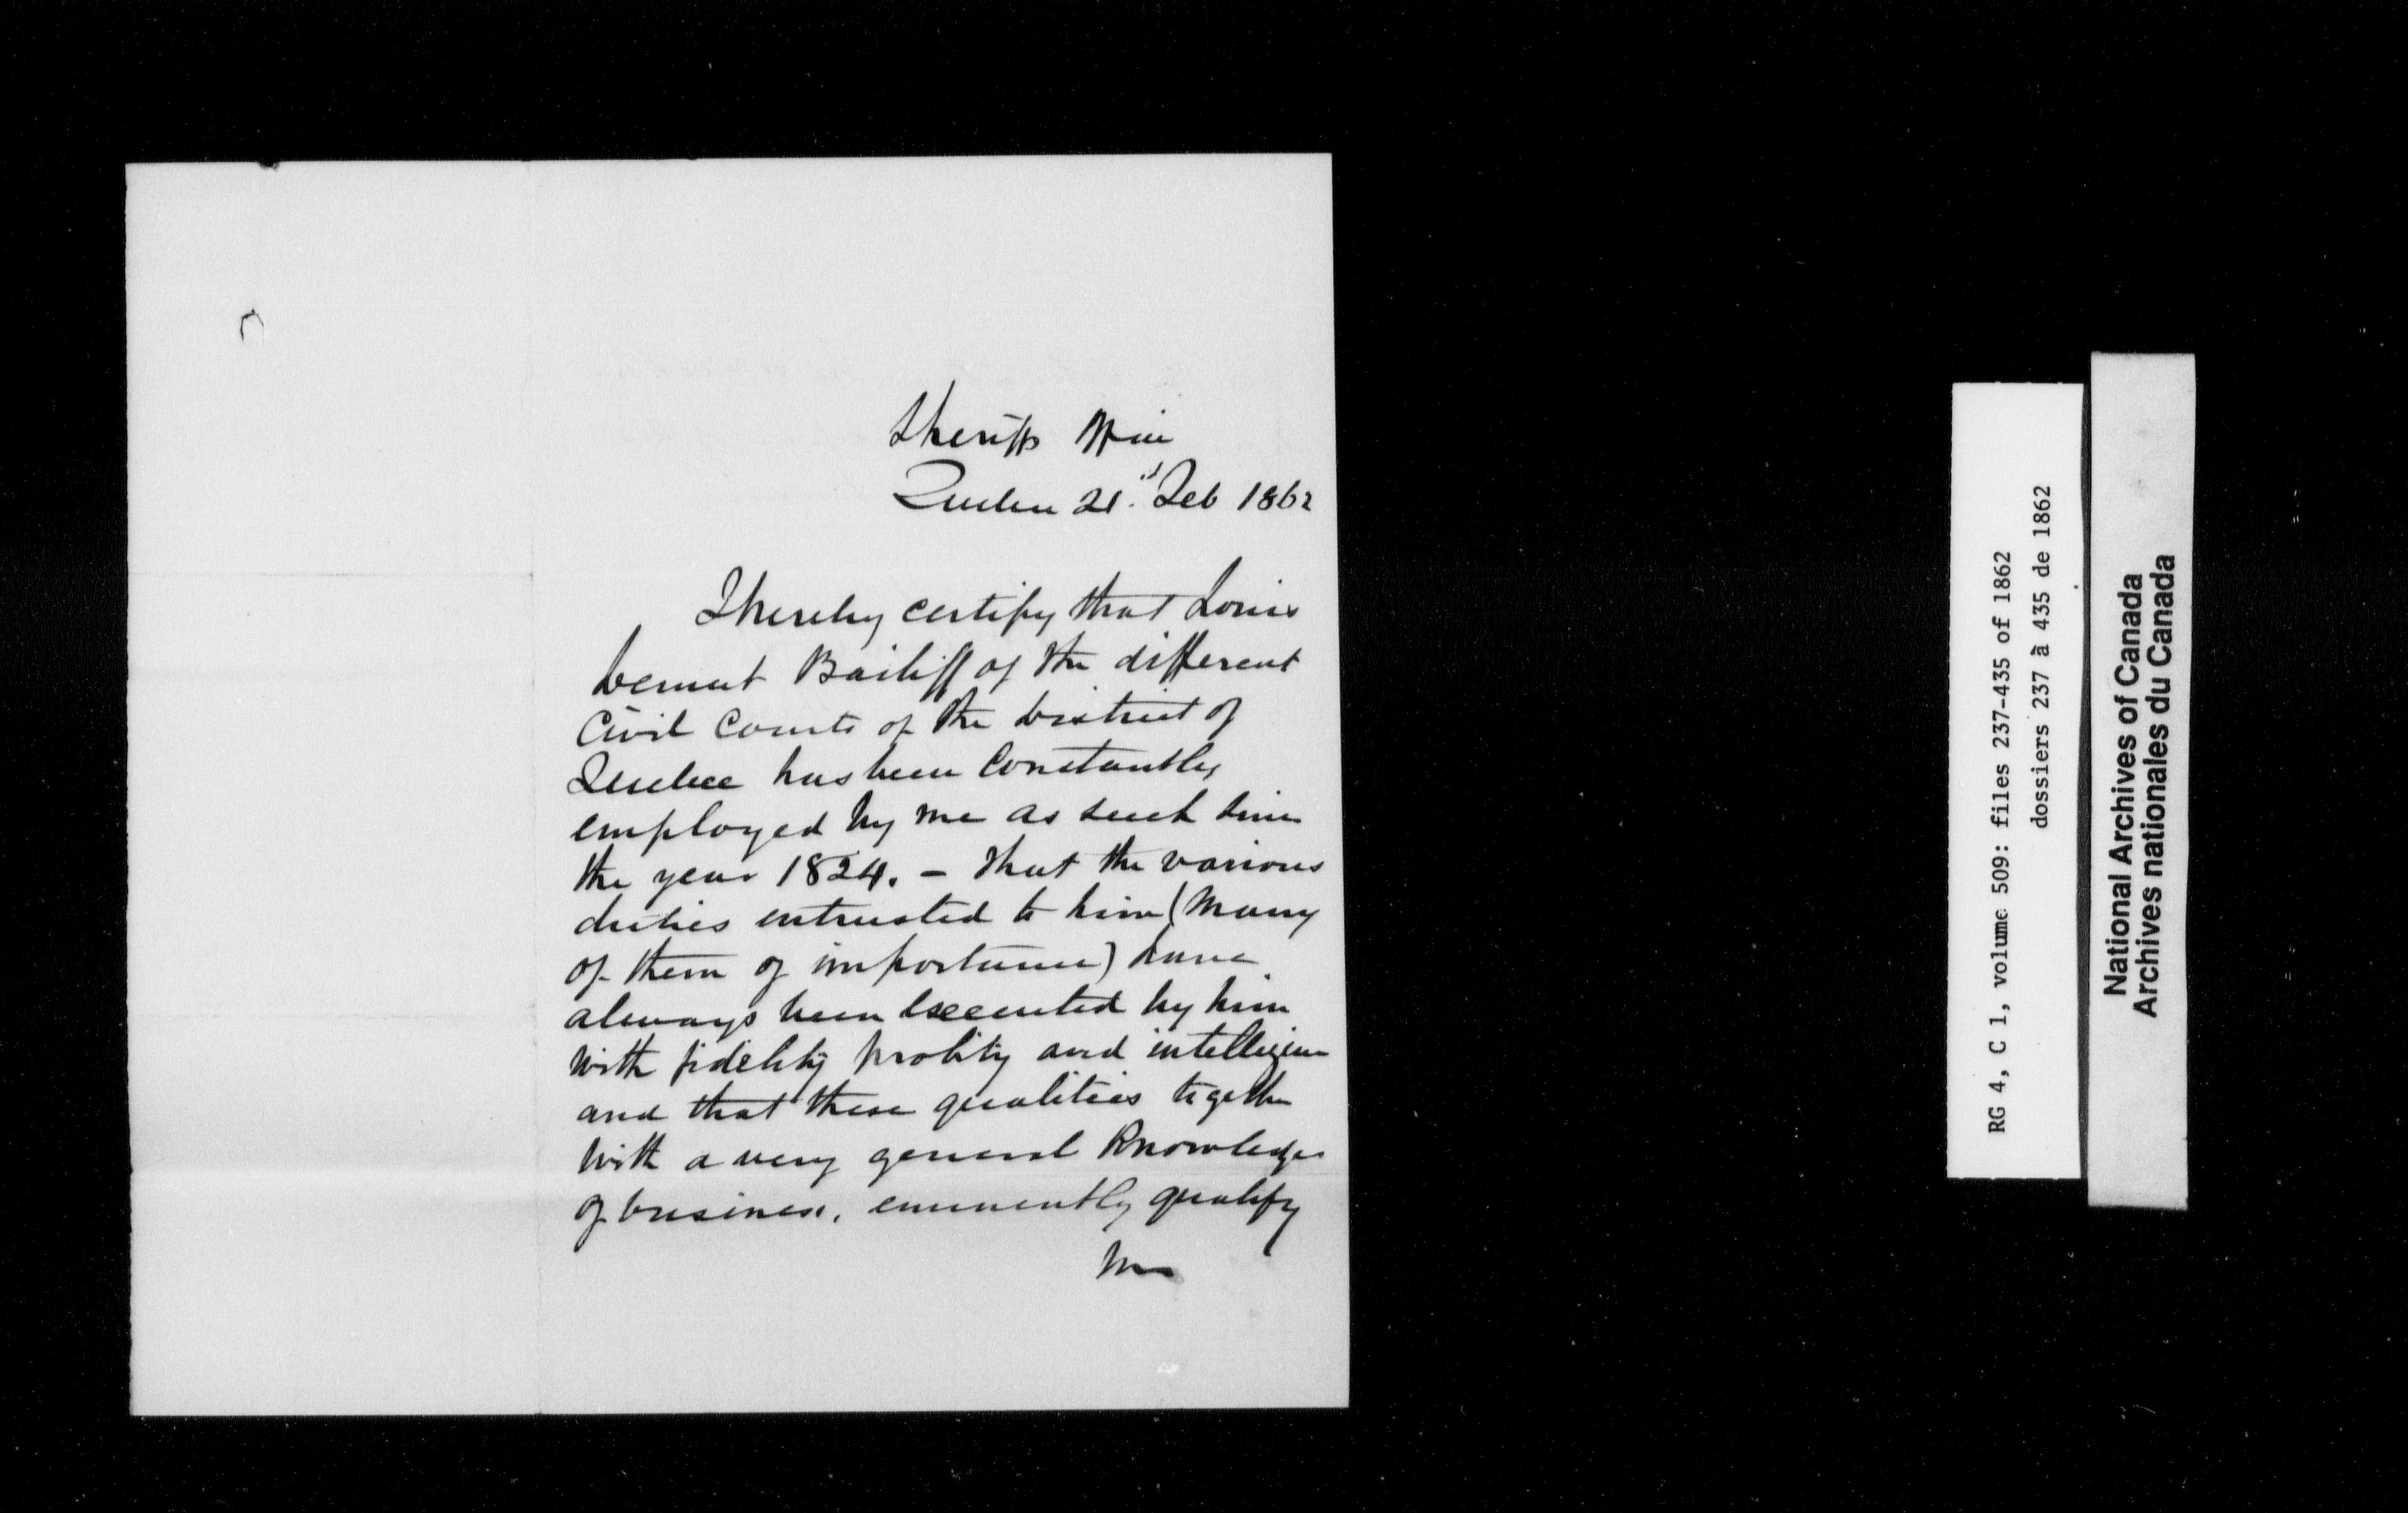 Sheriffs Office
Quebec 21st Feb 1862
I hereby certify that Louis
Bailiff of the different
Civil Courts of the District of
Quebec has been Constantly
employed by me as such since
the year 1824. – that the various
duties entrusted to him (many
of them of importance) have
always been executed by him
with fidelity probity and intelligence
and that these qualities together
with a very general Knowledge
of business, eminently qualify
RG 4, C 1, volume 509: files 237-435 of 1862
dossiers 237 à 435 de 1862
National Archives of Canada
Archives nationales du Canada